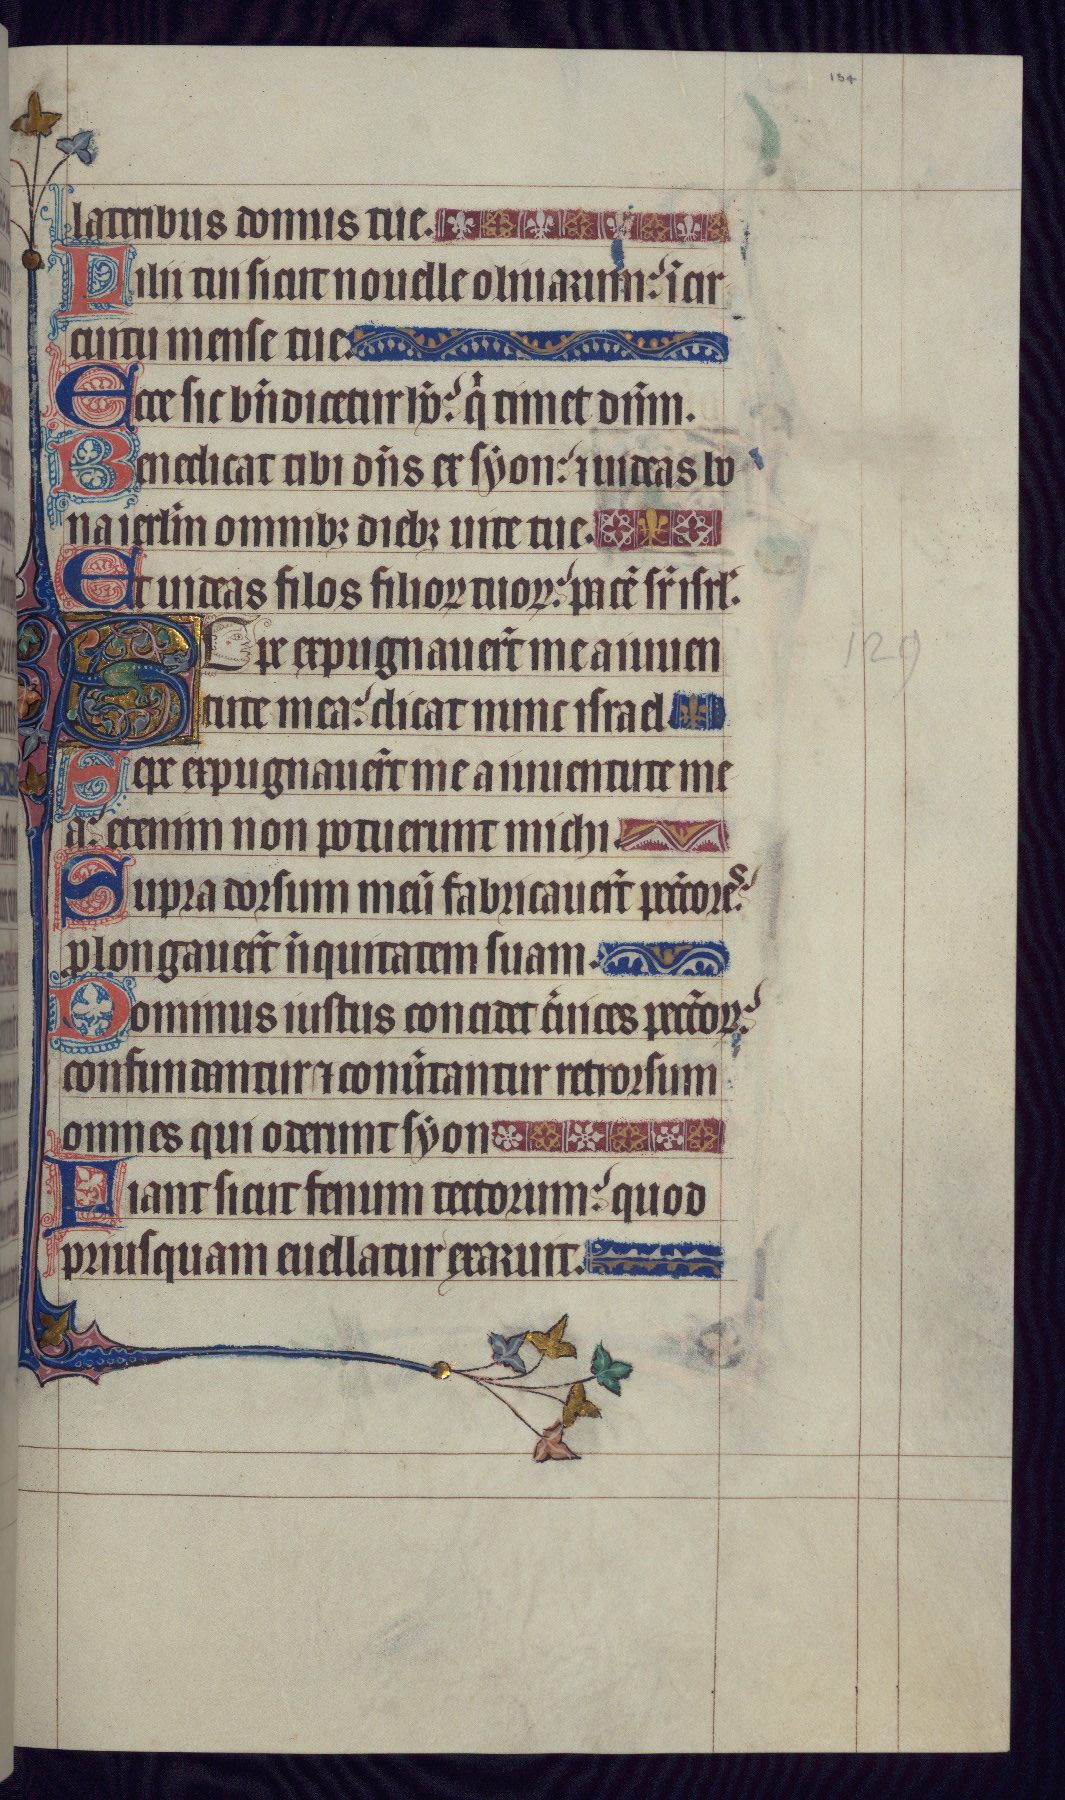 134
lateribus domus tue.
Filii tui sicut nouelle oliuarum: ī cir
cuitu mense tue.
Ecce sic bn̄dicetur hō: qͥ timet dn̄m.
Benedicat tibi dn̄s ex syon: ⁊ uideas bo
na ierl̄m omnibꝫ diebꝫ uite tue.
Et uideas filos filioꝝ tuoꝝ: pacē sr̄ isrl̄.
Sepe expugnauer̄t me a iuuen
tute mea: dicat nunc israel
129
Sepe expugnauer̄t me a iuuentute me
a: etenim non potuerunt michi.
Supra dorsum meū fabricauer̄t pecc̄ores:
ꝓlongauer̄t īiquitatem suam.
Dominus iustus concidet c̄uices pecc̄oꝝ:
confundantur ⁊ conūtantur retrorsum
omnes qui oderunt syon
Fiant sicut fenum tectorum: quod
priusquam euellatur exaruit.